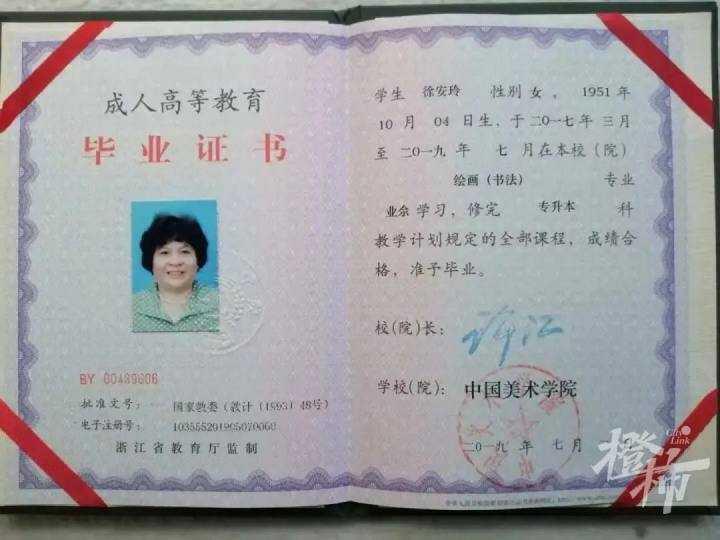 成人高等教育
毕业证书
BY 00489606
批准文号： 国家教委（教计（1993）48号）
电子注册号： 103555201905070060
浙江省教育厅监制
学生 徐安玲 性别 女 ，1951 年
10 月 04 日生，于二〇一七年 三 月
至 二〇一九 年 七 月在本校（院）
绘画（书法） 专业
业余 学习，修完 专升本 科
教学计划规定的全部课程，成绩合
格，准予毕业。
校（院）长： 许江
学校（院）： 中国美术学院
二〇一九 年 七 月
City Link
橙柿